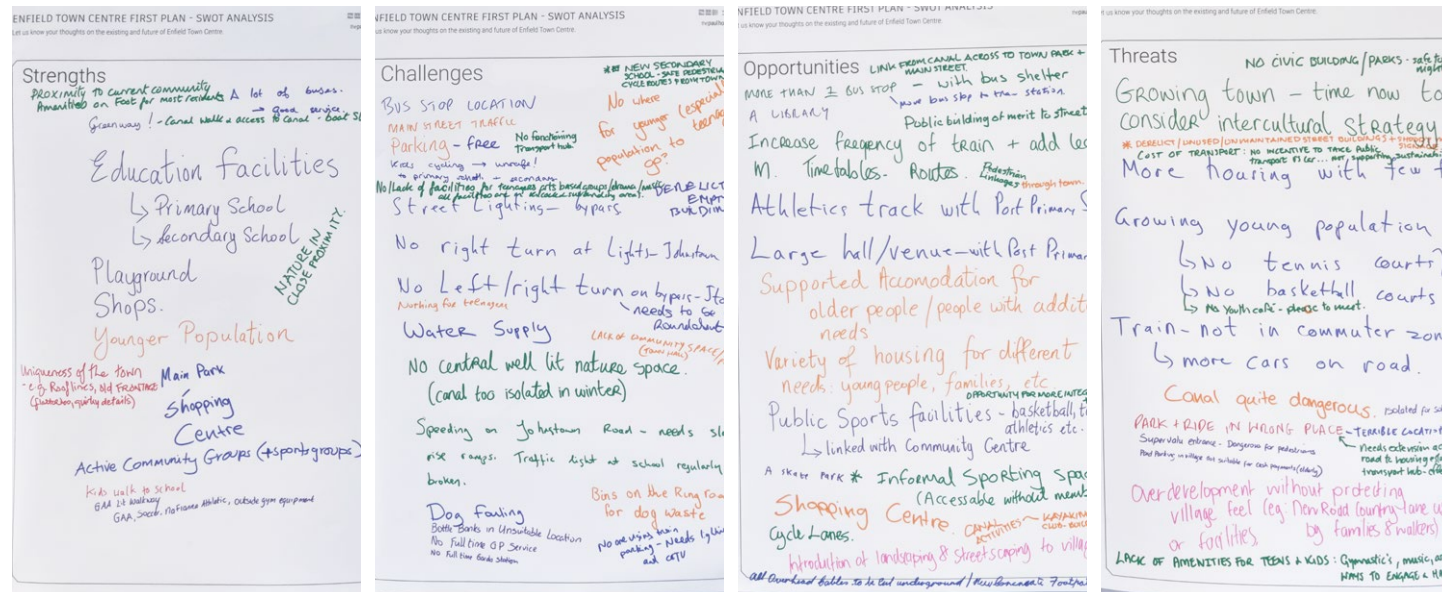 ENFIELD TOWN CENTRE FIRST PLAN - SWOT ANALYSIS
Let us know your thoughts on the existing and future of Enfield Town Centre.
Strengths
PROXIMITY TO current community
Amenities on Foot for most residents
A lot of buses.
→ good service.
Greenway! - Canal walk & access to canal - boat
Education facilities
↳ Primary School
↳ Secondary School
NATURE IN
CLOSE PROXIMITY.
Playground
Shops.
Younger Population
Uniqueness of the town
- e.g. Rooflines, old FRONTAGE
quirky details)
Main Park
Shopping
Centre
Active Community Groups (+sports groups)
Kids walk to school
GAA Lit Walkway
GAA, Soccer, Na Fianna Athletic, outside gym equipment
ENFIELD TOWN CENTRE FIRST PLAN - SWOT ANALYSIS
us know your thoughts on the existing and future of Enfield Town Centre.
Challenges
NEW SECONDARY
SCHOOL - SAFE PEDESTRIAN
CYCLE ROUTES FROM TOWN
BUS STOP LOCATION
MAIN STREET TRAFFIC
Parking - free
No functioning
Transport hub.
No where
for younger (especial
population to teenag
go?
Kids cycling → unsafe!
to primary school + secondary
No/Lack of facilities for teenagers arts based groups/drama/music
DERELICT
EMPTY
BUILDIN
Street Lighting - bypass
No right turn at lights - Johnstown
No Left/right turn on bypass - Jto
needs to be
Roundabout
Nothing for teenagers
Water Supply
LACK OF COMMUNITY SPACE/
(TOWN HALL)
No central well lit nature space.
(canal too isolated in winter)
Speeding on Johnstown Road - needs
rise ramps. Traffic light at school regularly
broken.
Dog Fouling
Bins on the Ring road
for dog waste
Bottle Banks in Unsuitable Location
No Full time GP Service
No Full time Garda Station
parking - Needs lighting
and CCTV
ENFIELD TOWN CENTRE FIRST PLAN - SWOT ANALYSIS
us know your thoughts on the existing and future of Enfield Town Centre.
Opportunities
LINK FROM CANAL ACROSS TO TOWN PARK +
MAIN STREET.
MORE THAN 1 BUS STOP - with bus shelter
move bus stop to train station.
A LIBRARY
Public building of merit to street
Increase freqency of train + add
M. Timetables. Routes.
Pedestrian
Linkages through town.
Athletics track with Post Primary
Large hall/venue - with Post Primar
Supported Accomodation for
older people/people with addit
needs
Variety of housing for different
needs: young people, families, etc.
OPPORTUNITY FOR MORE
Public Sports facilities - basketball, t
athletics etc.
↳ linked with Community Centre
A SKATE PARK * Informal Sporting Spac
(Accessable without memb
Shopping Centre.
CANAL
ACTIVITIES ~ KAYAKING
CLUB
Cycle Lanes.
Introduction of landscaping & streetscaping to villag
all Overhead Cables to be put underground / New Concrete Footpa
us know your thoughts on the existing and future of Enfield Town Centre.
Threats
NO CIVIC BUILDING/PARKS - safe
night
Growing town - time now to
consider intercultural strategy
* DERELICT/UNUSED/UNMAINTAINED STREET BUILDINGS +
COST OF TRANSPORT: NO INCENTIVE TO TAKE Public
transport vs car... not supporting sustainabi
More housing with few
Growing young population
↳ No tennis courts
↳ No basketball courts
↳ No Youth café - place to meet.
Train - not in commuter zon
↳ more cars on road.
Canal quite dangerous. isolated for
PARK + RIDE IN WRONG PLACE - TERRIBLE LOCATIO
Supervalu entrance - Dangerous for pedestrians
needs extension
road to housing
transport hub
Overdevelopment without protecting
village feel (eg: New Road Country lane
or facilities. by families & walkers)
LACK OF AMENITIES FOR TEENS & KIDS: Gymnastic's, music,
WAYS TO ENGAGE &